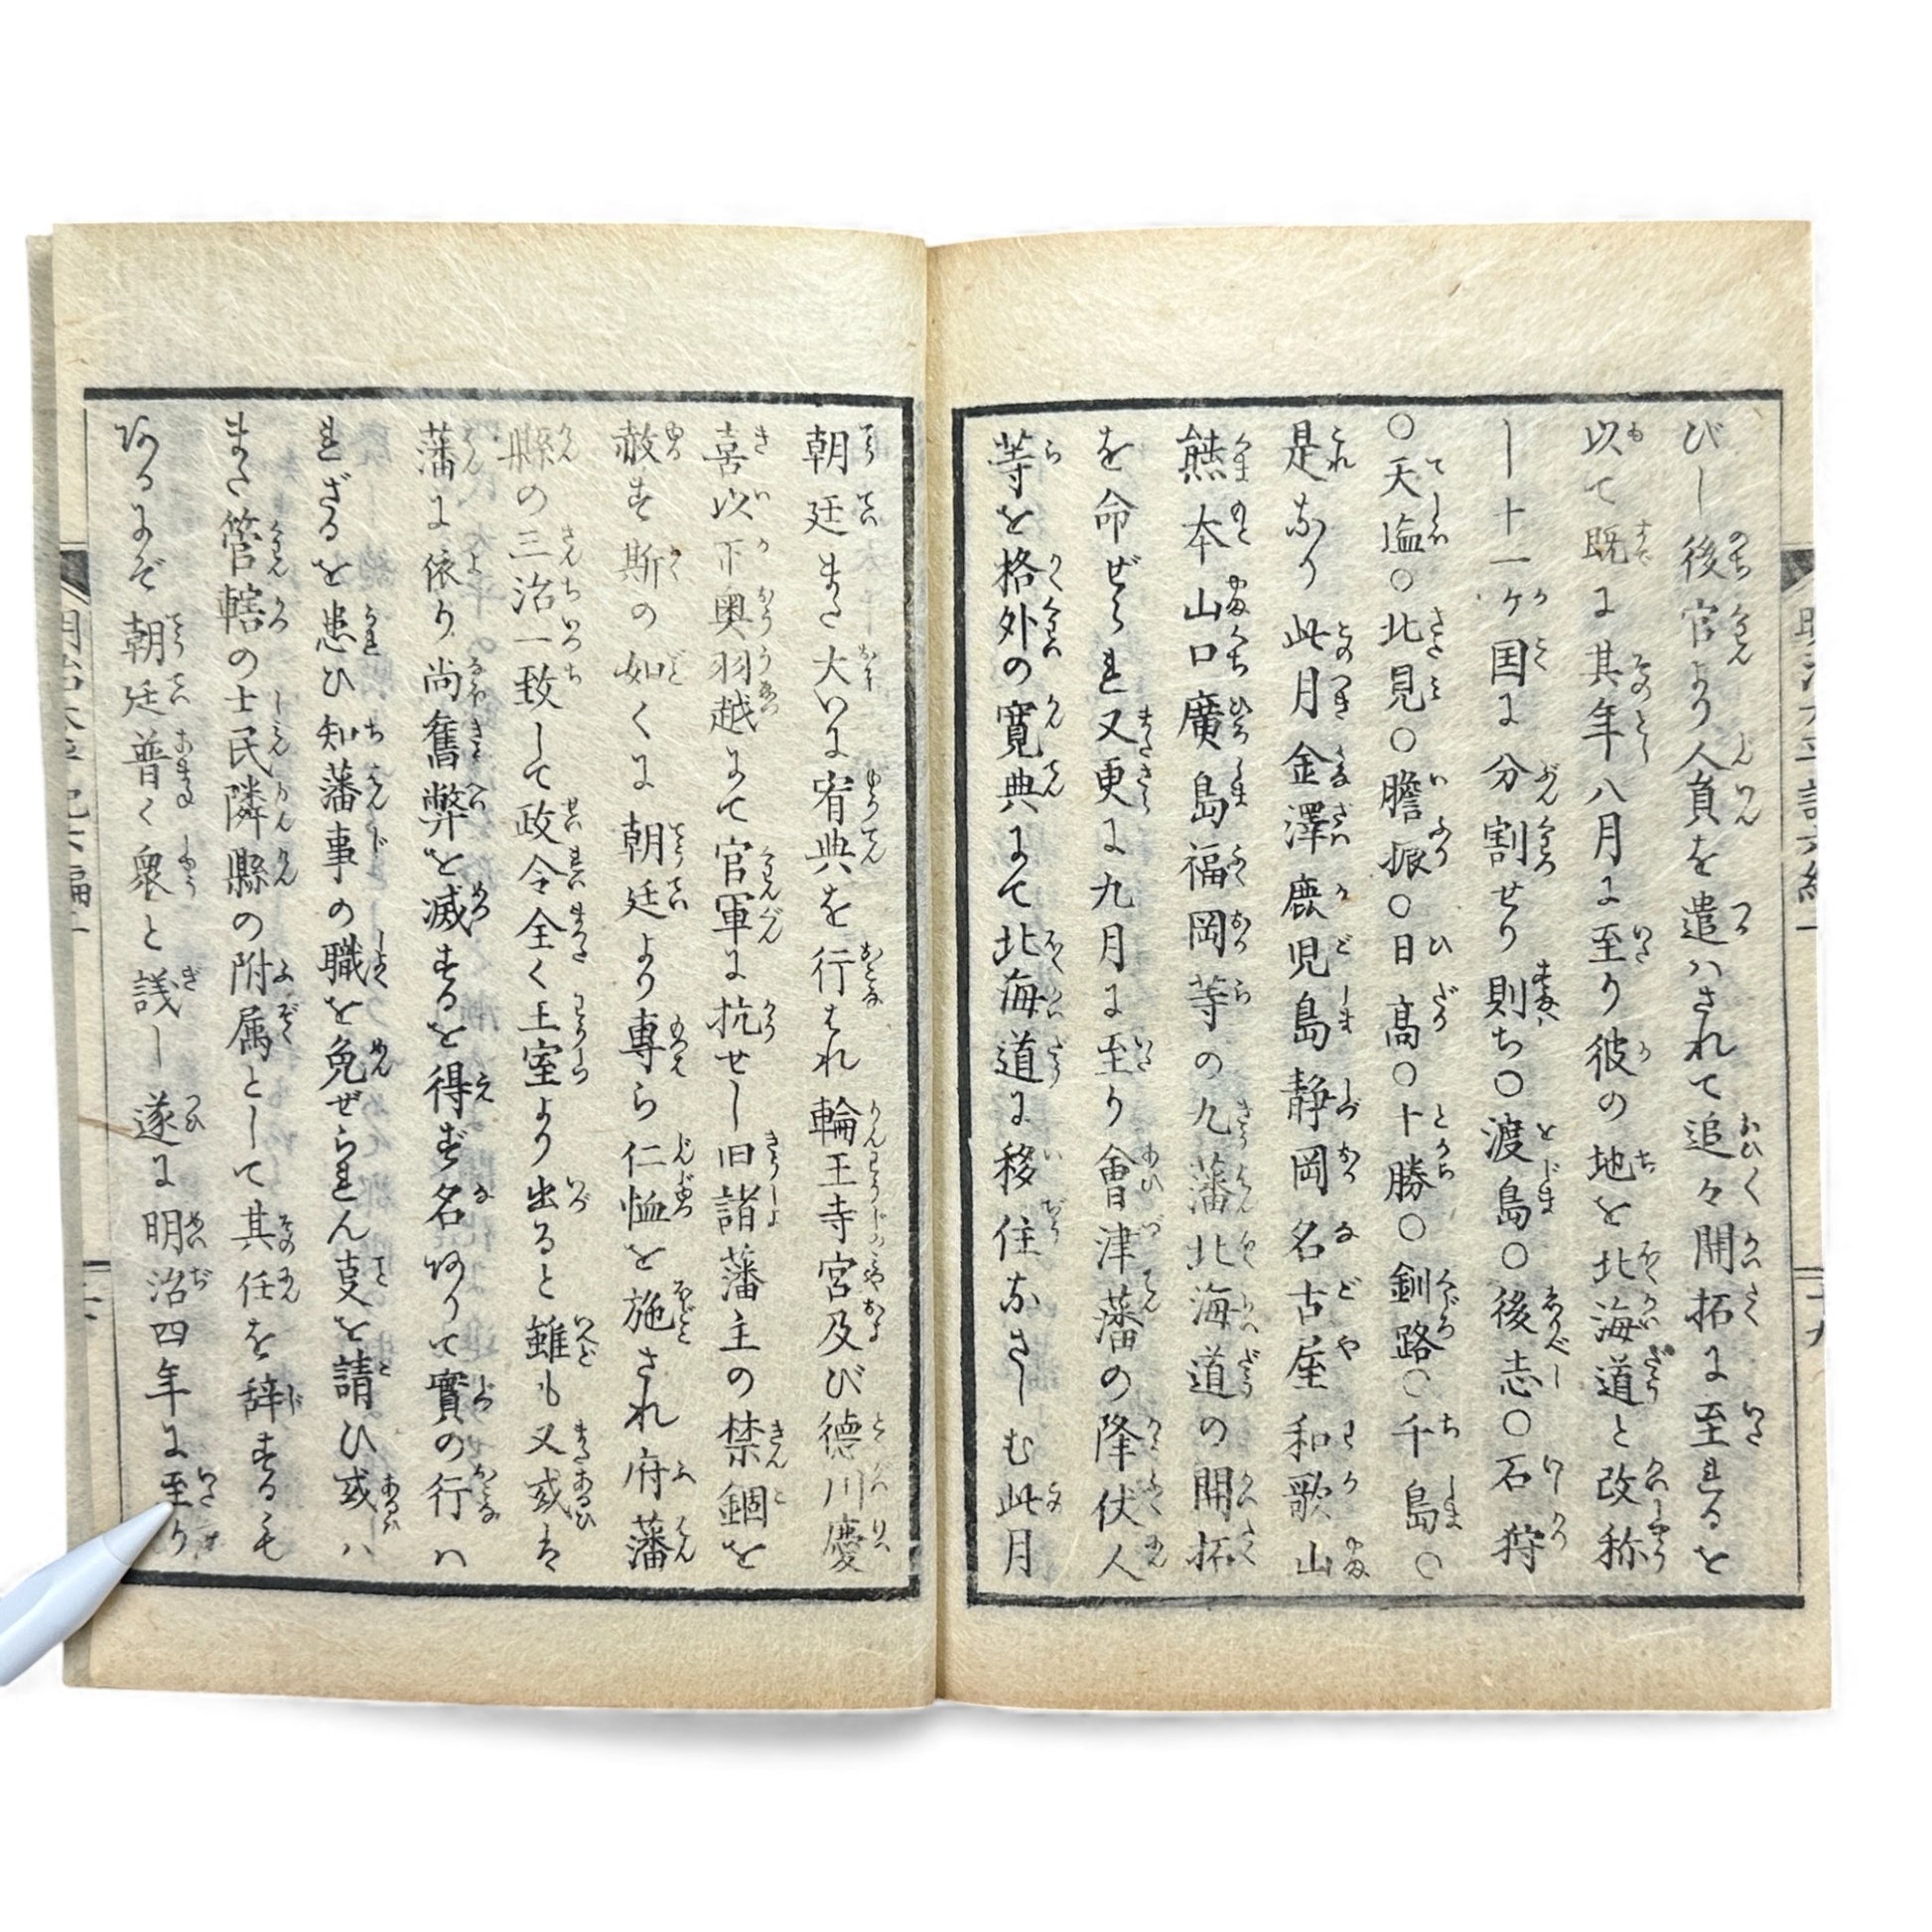 びし後官より人員を遣ハされて追々開拓に至れるを
以て既に其年八月に至り彼の地を北海道と改称
し十一ケ国に分割せり則ち〇渡島〇後志〇石狩
〇天塩〇北見〇膽振〇日高〇十勝〇釧路〇千島〇
是なり此月金澤鹿児島静岡名古屋和歌山
熊本山口廣島福岡等の九藩北海道の開拓
を命ぜられ又更に九月に至り會津藩の降伏人
等を格外の寛典にて北海道に移住なさしむ此月
朝廷また大いに宥典を行はれ輪王寺宮及び徳川慶
喜以下奥羽越にて官軍に抗せし旧諸藩主の禁錮を
赦す斯の如くに朝廷より專ら仁恤を施され府藩
縣の三治一致して政令全く王室より出ると雖も又或は
藩に依り尚奮弊を滅するを得ず名ありて實の行ハ
れざるを患ひ知藩事の職を免ぜられん支を請ひ或ハ
また管轄の士民隣縣の附属として其任を辞するも
あるにぞ朝廷普く衆と議し遂に明治四年に至り
明治太平記六編一